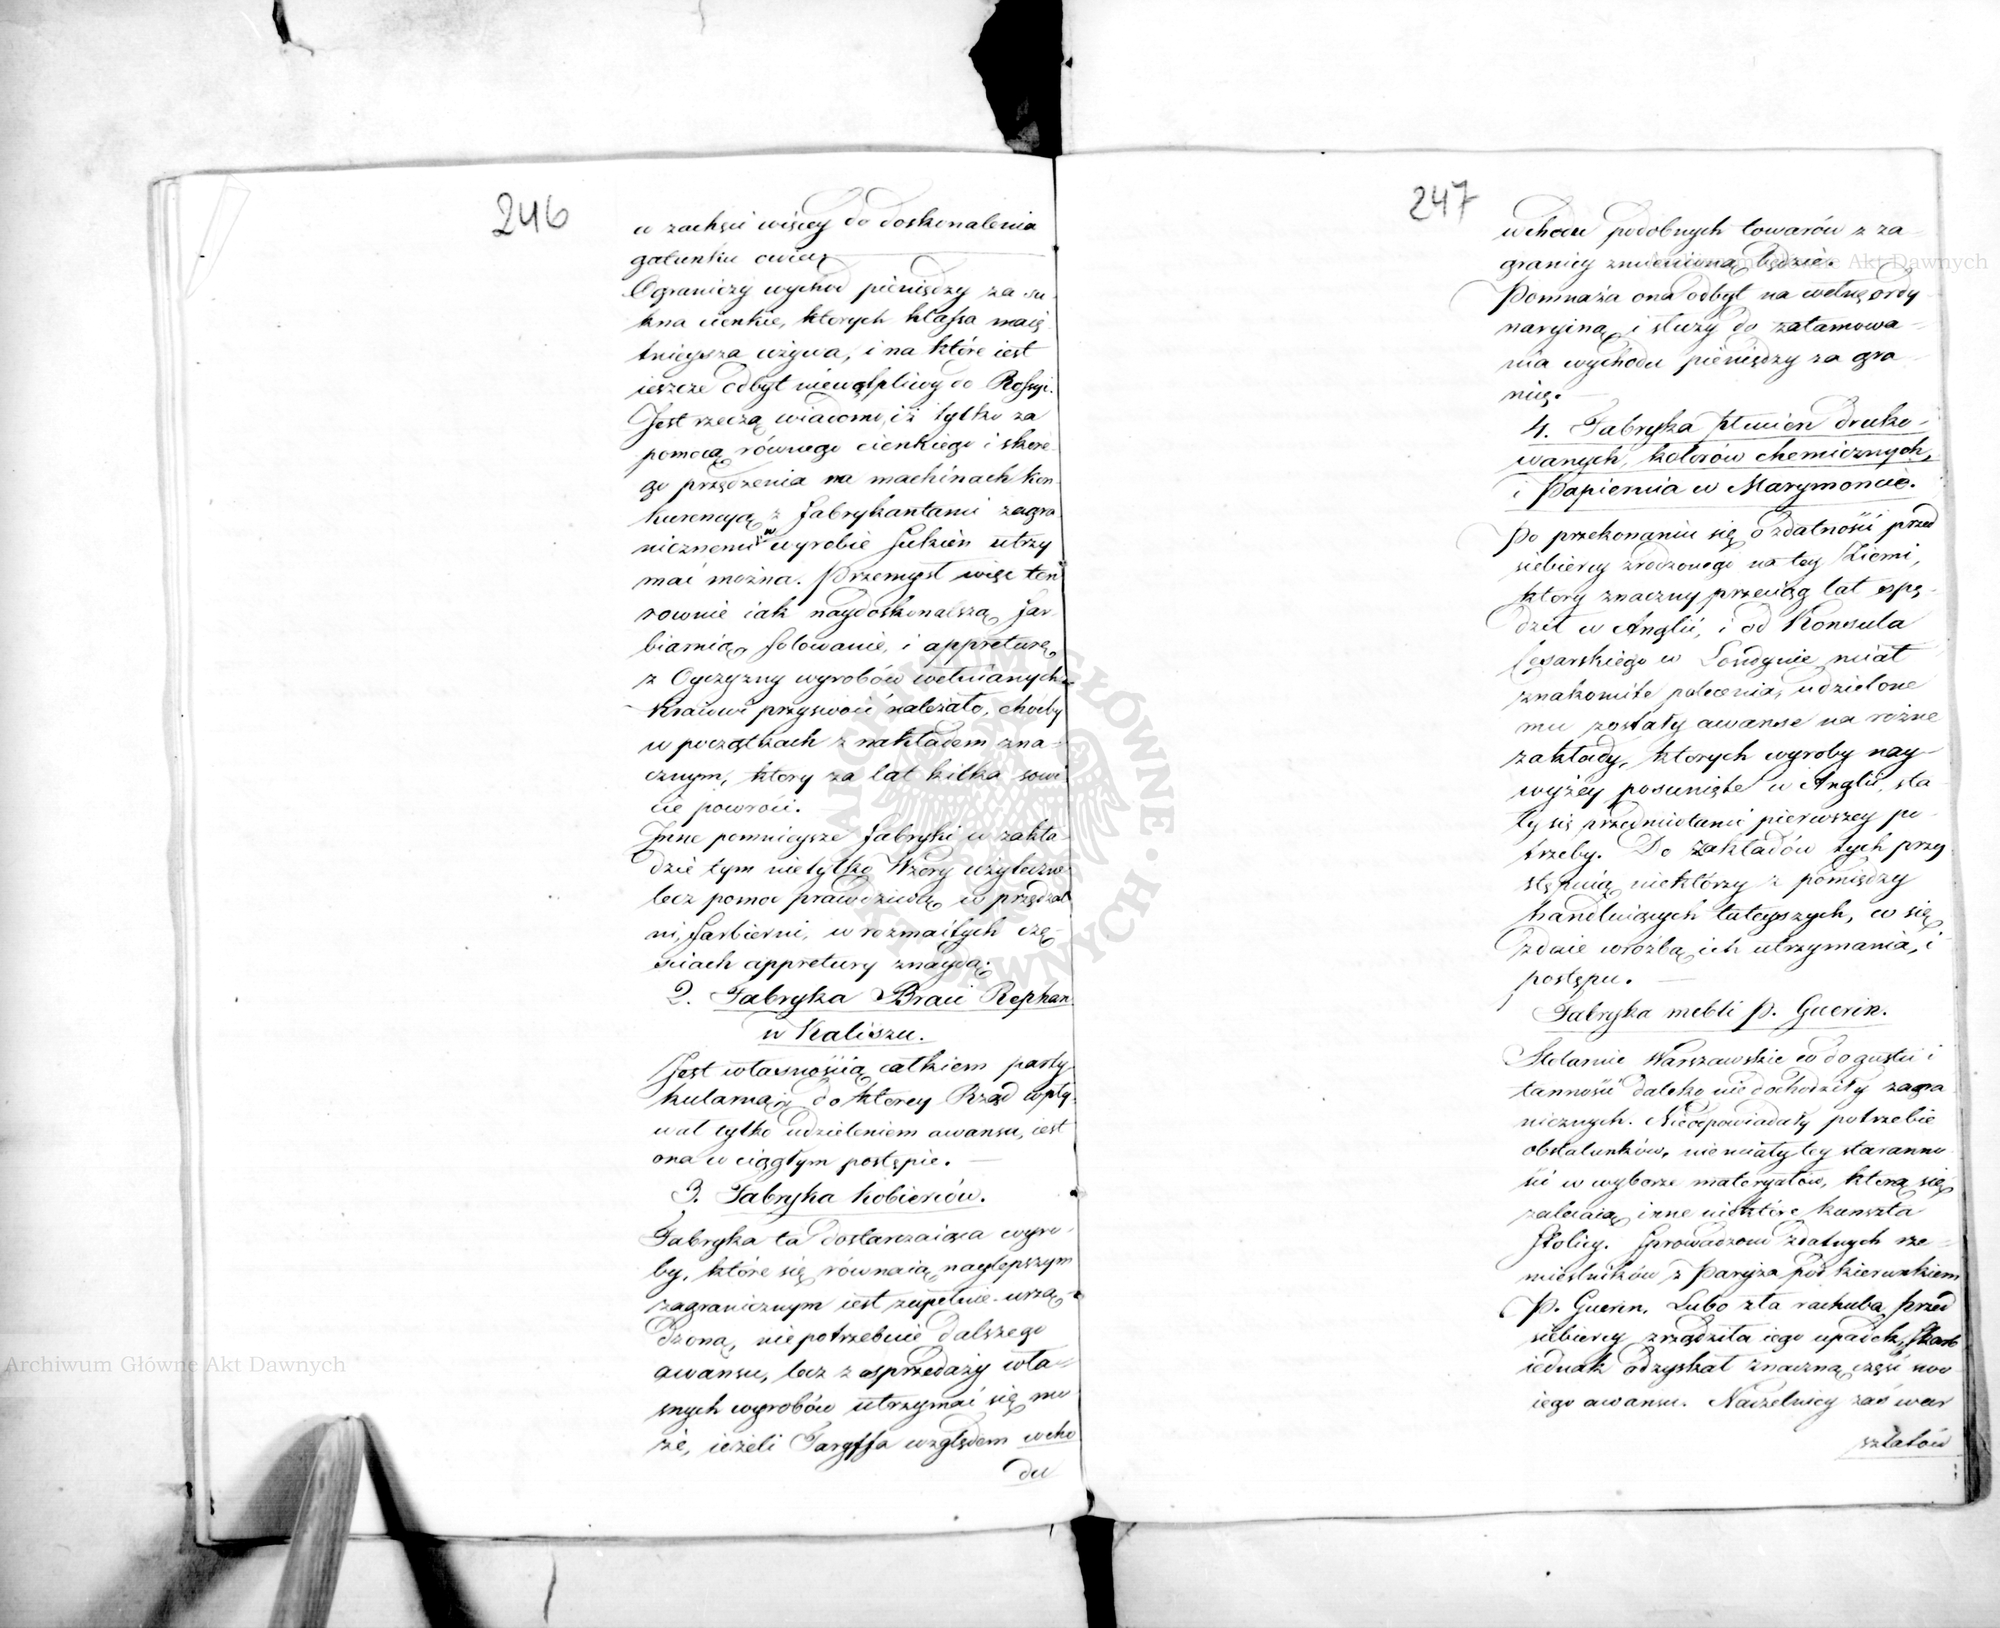 246
w zachęci więcey do doskonalenia
gatunku owiec,
Ograniczy wychod pieniędzy za su-
kna cienkie, ktorych klassa maię
tnieysza używa, i na które iest
ieszcze odbyt niewątpliwy do Rossyi.
Jest rzeczą wiadomo, iż tylko za
pomocą równego cienkiego i skore-
go przędzenia na machinach kon-
kurencyą z fabrykantami zagra-
nicznemi w wyrobie sukien utrzy
mać można. Przemysł więc ten
rownie iak naydoskonalszą far-
biarnią, folowanie, i appreturę,
z Oyczyzny wyrobów wełnianych
kraiowi przyswoić należało, choćby
w początkach z nakładem zna-
cznym, ktory za lat kilka sowi
cie powroci.
Inne pomnieysze fabryki w zakła-
dzie tym nie tylko Wzory użyteczne
lecz pomoc prawdziwą w przędzal
ni, farbierni, w rozmaitych czę-
ściach appretury znaydą.
2. Fabryka Braci Rephan
w Kaliszu.
Jest własnością całkiem party
kularną, do ktorey Rząd wpły-
wał tylko udzieleniem awansu, iest
ona w ciągłym postępie. —
3. Fabryka kobierców.
Fabryka ta dostarczaiąca wyro-
by, które się równaią naylepszym
zagranicznym iest zupełnie urzą-
dzona, nie potrzebuie dalszego
awansu, lecz z osprzedaży wła-
snych wyrobów utrzymać się mo
że, ieżeli Taryffa względem wcho
du
247
wchodu podobnych towarów z za-
granicy zmienioną będzie.
Pomnaża ona odbyt na wełnę ordy-
naryiną, i służy do zatamowa-
nia wychodu pieniędzy za gra-
nicę. —
4. Fabryka płucien druko-
wanych, kolorów chemicznych,
i Papiernia w Marymoncie.
Po przekonaniu się o zdatności przed
siebiercy zrodzonego na tey Ziemi,
ktory znaczny przeciąg lat spę-
dził w Anglii, i od Konsula
Cesarskiego w Londynie miał
znakomite polecenia, udzielone
mu zostały awanse na rożne
zakłady, ktorych wyroby nay-
wyżey posunięte w Anglii, sta
ły się przedmiotami pierwszey po-
trzeby. Do zakładów tych przy
stępuią niektórzy z pomiędzy
handluiących tuteyszych, co się
zdaie wrożbą ich utrzymania, i
postępu. —
Fabryka mebli P. Guerin.
Stolarnie Warszawskie co do gustu i
tanności daleko nie dochodziły zagra
nicznych. Nieodpowiadały potrzebie
obstalunków, nie miały tey staranno
ści w wyborze materyałów, którą się
zalecaią inne niektóre kunszta
Stolicy. Sprowadzono zdatnych rze-
mieślników z Paryża pod kierunkiem
P. Guerin. Lubo zła rachuba przed
siebiercy zrządziła iego upadek, Skarb
iednak odzyskał znaczną część swo
iego awansu. Naczelnicy zaś war
sztatów
Archiwum Główne Akt Dawnych
Archiwum Główne Akt Dawnych
ARCHIWUM GŁÓWNE AKT DAWNYCH